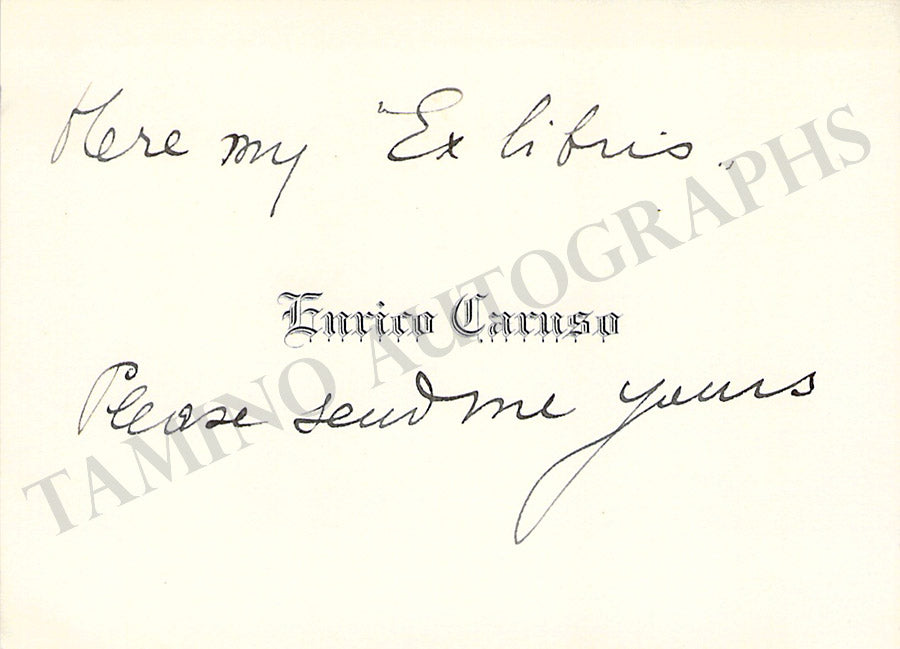 Here my "Ex libris„
Enrico Caruso
Please send me yours
TAMINO AUTOGRAPHS